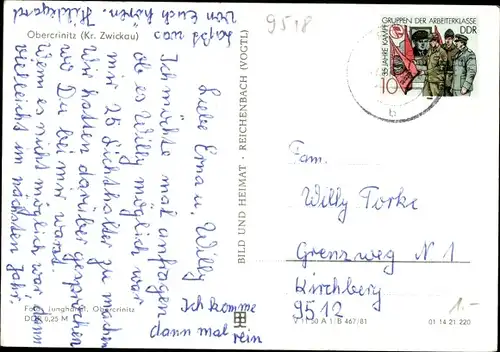 Obercrinitz (Kr. Zwickau)
Liebe Erna u. Willy
Ich möchte mal anfragen
ob es Willy möglich war
mir 25 Lichthalter zu machen
Wir hatten darüber gesprochen
wo Du bei mir warst.
Wenn es nicht möglich war dann
vielleicht im nächsten Jahr.
Ich komme
dann mal rein
Laßt was
von Euch hören. Hildegard
Foto: Junghanns, Obercrinitz
DDR 0,25 M
BILD UND HEIMAT · REICHENBACH (VOGTL)
V 11 50 A 1/B 467/81
01 14 21 220
9518
35 JAHRE KAMPFGRUPPEN DER ARBEITERKLASSE
DDR
10
b
Fam.
Willy Torke
Grenzweg N 1
Kirchberg
9512
1.-